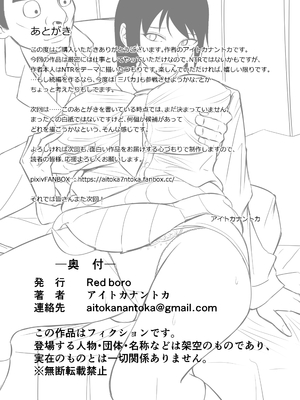 あとがき
この度はご購入いただきありがとうございます。作者のアイトカナントカです。
今回の作品は最密には仕事としてやっていただけなので、NTRではないかもですが、
作者本人はNTRをテーマに描いたつもりです。楽しんでいただければ、嬉しい限りです。
…もし続編を作るなら、今度は「三バカ」も参戦させようかな、とか
ちょっと考えたりもしてます。
次回は……このあとがきを書いている時点では、まだ決まっていません。
まったくの白紙ではないですけど、何個か候補があって
どれを描こうかなという、そんな感じです。
よろしければ次回も、面白い作品をお届けする心づもりで制作しますので、
読者の皆様、応援よろしくお願いします。
pixivFANBOX : https://aitoka7ntoka.fanbox.cc/
それでは皆さんまた次回！
アイトカナントカ
―奥 付―
発 行 Red boro
著 者 アイトカナントカ
連絡先 aitokanantoka@gmail.com
この作品はフィクションです。
登場する人物・団体・名称などは架空のものであり、
実在のものとは一切関係ありません。
※無断転載禁止